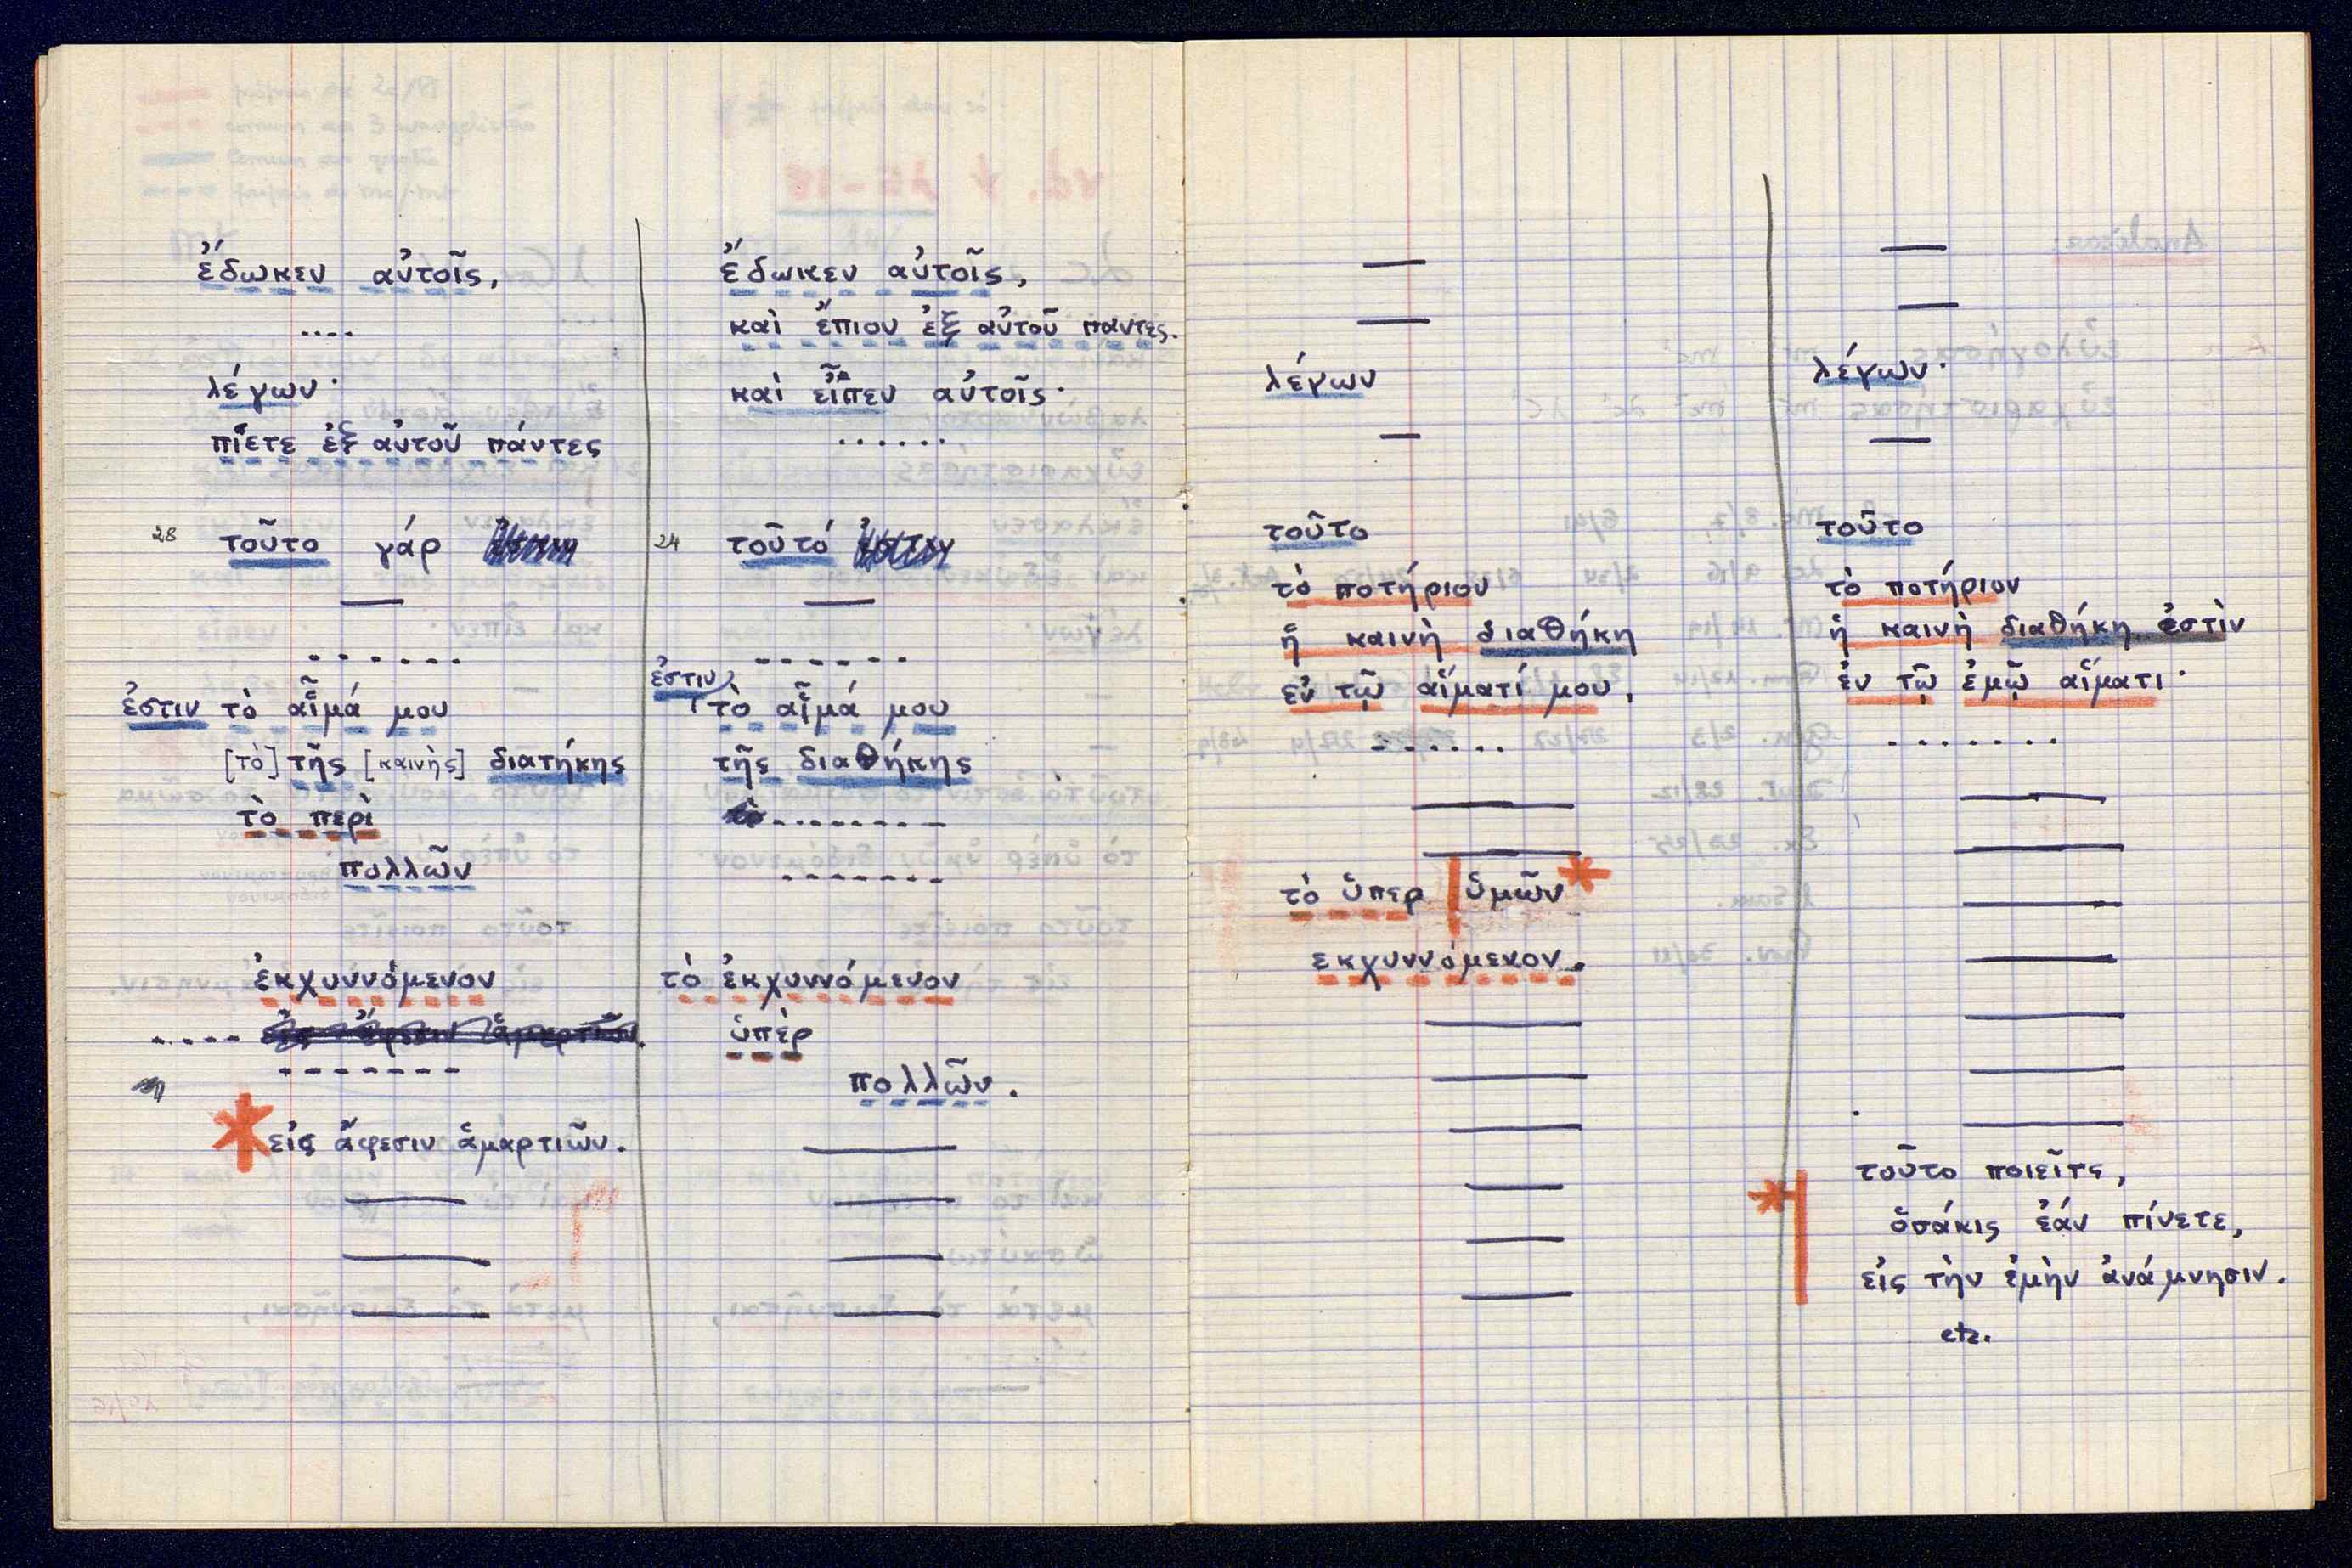 ἔδωκεν αὐτοῖς,
....
λέγων·
πίετε ἐξ αὐτοῦ πάντες
28 τοῦτο γάρ
ἐστιν τὸ αἷμά μου
[τὸ] τῆς [καινὴς] διατήκης
τὸ περὶ
πολλῶν
ἐκχυννόμενον
....
εἰς ἄφεσιν ἁμαρτιῶν.
ἔδωκεν αὐτοῖς,
καὶ ἔπιον ἐξ αὐτοῦ παντες.
καὶ εἶπεν αὐτοῖς·
......
24 τοῦτό
ἐστιν
τὸ αἷμά μου
τῆς διαθήκης
τὸ ἐκχυννόμενον
ὑπὲρ
πολλῶν.
λέγων
τοῦτο
τὸ ποτήριον
ἡ καινὴ διαθήκη
εν τῷ αἵματί μου,
......
τὸ ὑπερ ὑμῶν *
εκχυννόμενον.
λέγων·
τοῦτο
τὸ ποτήριον
ἡ καινὴ διαθήκη ἐστὶν
ἐν τῷ ἐμῷ αἵματι·
.......
* τοῦτο ποιεῖτε,
ὁσάκις ἐάν πίνετε,
εἰς τὴν ἐμὴν ἀνάμνησιν.
etc.